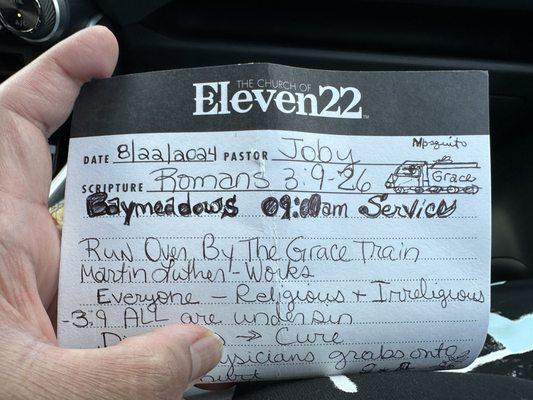 THE CHURCH OF
ELEVEN22™
Mosquito
DATE 8/22/2024 PASTOR Joby
SCRIPTURE Romans 3:9-26
Grace
Baymeadows 09:00am Service
Run Over By The Grace Train
Martin Luther - Works
Everyone - Religious + Irreligious
-3:9 All are under sin
→ Cure
physicians grabs onto